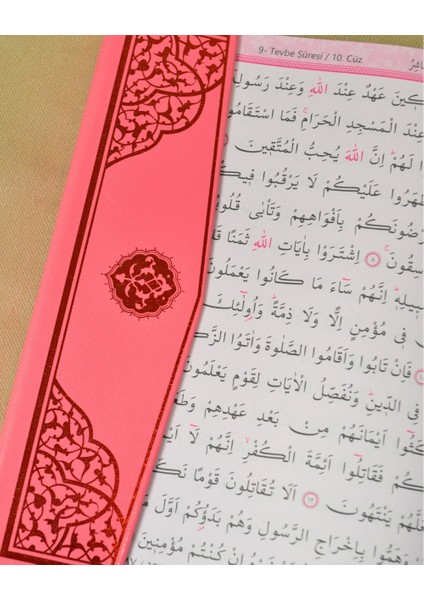 9- Tevbe Sûresi / 10. Cüz
عَهْدٌ عِنْدَ اللّٰهِ وَعِنْدَ رَسُولِ
عِنْدَ الْمَسْجِدِ الْحَرَامِۚ فَمَا اسْتَقَامُوا
لَهُمْۜ اِنَّ اللّٰهَ يُحِبُّ الْمُتَّق۪ينَ
عَلَيْكُمْ لَا يَرْقُبُوا ف۪ي
بِاَفْوَاهِهِمْ وَتَأْبٰى قُلُو
٨ اِشْتَرَوْا بِاٰيَاتِ اللّٰهِ ثَمَنًا
اِنَّهُمْ سَٓاءَ مَا كَانُوا يَعْمَلُونَ
ف۪ي مُؤْمِنٍ اِلًّا وَلَا ذِمَّةًۜ وَاُو۬لٰٓئِكَ
فَاِنْ تَابُوا وَاَقَامُوا الصَّلٰوةَ وَاٰتَوُا
فِي الدّ۪ينِۜ وَنُفَصِّلُ الْاٰيَاتِ لِقَوْمٍ يَعْلَمُونَ
اَيْمَانَهُمْ مِنْ بَعْدِ عَهْدِهِمْ
فَقَاتِلُٓوا اَئِمَّةَ الْكُفْرِۙ اِنَّهُمْ لَٓا
يَنْتَهُونَ ١٢ اَلَا تُقَاتِلُونَ قَوْمًا
بِاِخْرَاجِ الرَّسُولِ وَهُمْ بَدَؤُ۫كُمْ اَوَّلَ
اِنْ كُنْتُمْ مُؤْمِن۪ينَ